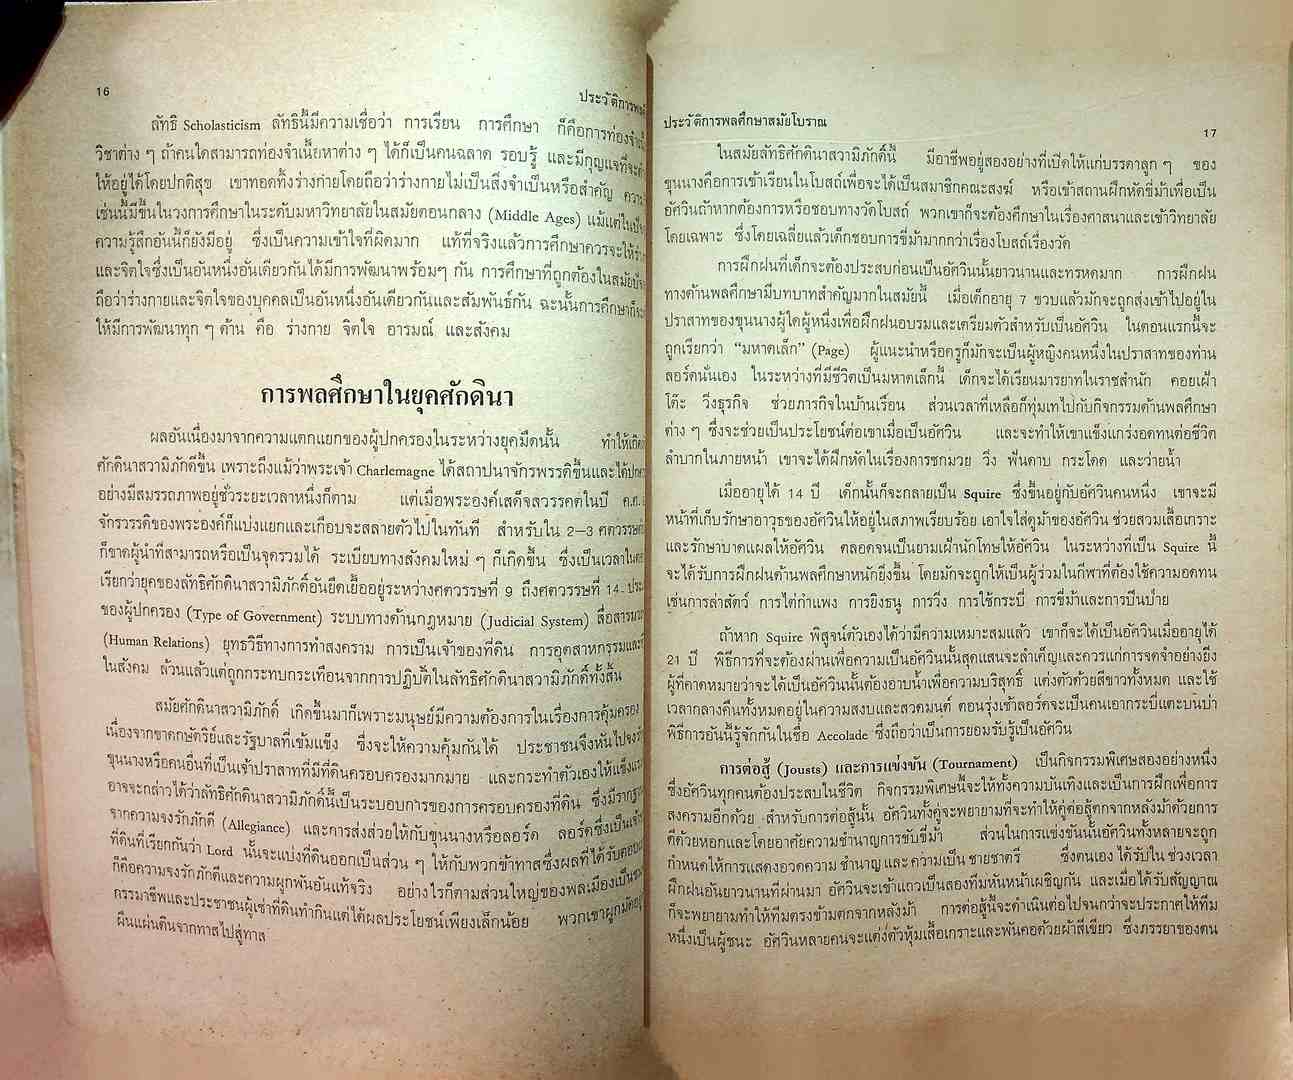 16
ประวัติการพล
ลัทธิ Scholasticism ลัทธินี้มีความเชื่อว่า การเรียน การศึกษา ก็คือการท่องจำ
วิชาต่าง ๆ ถ้าคนใดสามารถท่องจำเนื้อหาต่าง ๆ ได้ก็เป็นคนฉลาด รอบรู้ และมีกุญแจที่จะ
ให้อยู่ได้โดยปกติสุข เขาทอดทิ้งร่างก่ายโดยถือว่าร่างกายไม่เป็นสิ่งจำเป็นหรือสำคัญ
เช่นนี้มีขึ้นในวงการศึกษาในระดับมหาวิทยาลัยในสมัยตอนกลาง (Middle Ages) แม้แต่ในปั
ความรู้สึกอันนี้ก็ยังมีอยู่ ซึ่งเป็นความเข้าใจที่ผิดมาก แท้ที่จริงแล้วการศึกษาควรจะให้ร่า
และจิตใจซึ่งเป็นอันหนึ่งอันเดียวกันได้มีการพัฒนาพร้อมๆ กัน การศึกษาที่ถูกต้องในสมัยปัจ
ถือว่าร่างกายและจิตใจของบุคคลเป็นอันหนึ่งอันเดียวกันและสัมพันธ์กัน ฉะนั้นการศึกษาก็จะ
ให้มีการพัฒนาทุก ๆ ด้าน คือ ร่างกาย จิตใจ อารมณ์ และสังคม
การพลศึกษาในยุคศักดินา
ผลอันเนื่องมาจากความแตกแยกของผู้ปกครองในระหว่างยุคมืดนั้น ทำให้เกิด
ศักดินาสวามิภักดิ์ขึ้น เพราะถึงแม้ว่าพระเจ้า Charlemagne ได้สถาปนาจักรพรรดิขึ้นและได้ปกค
อย่างมีสมรรถภาพอยู่ชั่วระยะเวลาหนึ่งก็ตาม แต่เมื่อพระองค์เสด็จสวรรคตในปี ค.ศ.
จักรวรรดิของพระองค์ก็แบ่งแยกและเกือบจะสลายตัวไปในทันที สำหรับใน 2–3 ศตวรรษต่
ก็ขาดผู้นำที่สามารถหรือเป็นจุดรวมได้ ระเบียบทางสังคมใหม่ ๆ ก็เกิดขึ้น ซึ่งเป็นเวลาใน
เรียกว่ายุคของลัทธิศักดินาสวามิภักดิ์อันยืดเยื้ออยู่ระหว่างศตวรรษที่ 9 ถึงศตวรรษที่ 14 ประ
ของผู้ปกครอง (Type of Government) ระบบทางด้านกฎหมาย (Judicial System) สื่อสารมวล
(Human Relations) ยุทธวิธีทางการทำสงคราม การเป็นเจ้าของที่ดิน การอุตสาหกรรมและ
ในสังคม ล้วนแล้วแต่ถูกกระทบกระเทือนจากการปฏิบัติในลัทธิศักดินาสวามิภักดิ์ทั้งสิ้น
สมัยศักดินาสวามิภักดิ์ เกิดขึ้นมาก็เพราะมนุษย์มีความต้องการในเรื่องการคุ้มครอง
เนื่องจากขาดกษัตริย์และรัฐบาลที่เข้มแข็ง ซึ่งจะให้ความคุ้มกันได้ ประชาชนจึงหันไปจงรั
ขุนนางหรือคนอื่นที่เป็นเจ้าปราสาทที่มีที่ดินครอบครองมากมาย และกระทำตัวเองให้แข็งแรง
อาจจะกล่าวได้ว่าลัทธิศักดินาสวามิภักดิ์นี้เป็นระบอบการของการครอบครองที่ดิน ซึ่งมีรากฐาน
จากความจงรักภักดี (Allegiance) และการส่งส่วยให้กับขุนนางหรือลอร์ด ลอร์ดซึ่งเป็นเจ้า
ที่ดินที่เรียกกันว่า Lord นั้นจะแบ่งที่ดินออกเป็นส่วน ๆ ให้กับพวกข้าทาสซึ่งผลที่ได้รับตอบแ
ก็คือความจงรักภักดีและความผูกพันอันแท้จริง อย่างไรก็ตามส่วนใหญ่ของพลเมืองเป็น
กรรมาชีพและประชาชนผู้เช่าที่ดินทำกินแต่ได้ผลประโยชน์เพียงเล็กน้อย พวกเขาผูกมัด
ผืนแผ่นดินจากทาสไปสู่ทาส
ประวัติการพลศึกษาสมัยโบราณ
17
ในสมัยลัทธิศักดินาสวามิภักดิ์นี้ มีอาชีพอยู่สองอย่างที่เปิดให้แก่บรรดาลูก ๆ ของ
ขุนนางคือการเข้าเรียนในโบสถ์เพื่อจะได้เป็นสมาชิกคณะสงฆ์ หรือเข้าสถานฝึกหัดขี่ม้าเพื่อเป็น
อัศวินถ้าหากต้องการหรือชอบทางวัดโบสถ์ พวกเขาก็จะต้องศึกษาในเรื่องศาสนาและเข้าวิทยาลัย
โดยเฉพาะ ซึ่งโดยเฉลี่ยแล้วเด็กชอบการขี่ม้ามากกว่าเรื่องโบสถ์เรื่องวัด
การฝึกฝนที่เด็กจะต้องประสบก่อนเป็นอัศวินนั้นยาวนานและทรหดมาก การฝึกฝน
ทางด้านพลศึกษามีบทบาทสำคัญมากในสมัยนี้ เมื่อเด็กอายุ 7 ขวบแล้วมักจะถูกส่งเข้าไปอยู่ใน
ปราสาทของขุนนางผู้ใดผู้หนึ่งเพื่อฝึกฝนอบรมและเตรียมตัวสำหรับเป็นอัศวิน ในตอนแรกนี้จะ
ถูกเรียกว่า “มหาดเล็ก” (Page) ผู้แนะนำหรือครูก็มักจะเป็นผู้หญิงคนหนึ่งในปราสาทของท่าน
ลอร์ดนั่นเอง ในระหว่างที่มีชีวิตเป็นมหาดเล็กนี้ เด็กจะได้เรียนมารยาทในราชสำนัก คอยเฝ้า
โต๊ะ วิ่งธุรกิจ ช่วยภารกิจในบ้านเรือน ส่วนเวลาที่เหลือก็ทุ่มเทไปกับกิจกรรมด้านพลศึกษา
ต่าง ๆ ซึ่งจะช่วยเป็นประโยชน์ต่อเขาเมื่อเป็นอัศวิน และจะทำให้เขาแข็งแกร่งอดทนต่อชีวิต
ลำบากในภายหน้า เขาจะได้ฝึกหัดในเรื่องการชกมวย วิ่ง ฟันดาบ กระโดด และว่ายน้ำ
เมื่ออายุได้ 14 ปี เด็กนั้นก็จะกลายเป็น Squire ซึ่งขึ้นอยู่กับอัศวินคนหนึ่ง เขาจะมี
หน้าที่เก็บรักษาอาวุธของอัศวินให้อยู่ในสภาพเรียบร้อย เอาใจใส่ดูม้าของอัศวิน ช่วยสวมเสื้อเกราะ
และรักษาบาดแผลให้อัศวิน ตลอดจนเป็นยามเฝ้านักโทษให้อัศวิน ในระหว่างที่เป็น Squire นี้
จะได้รับการฝึกฝนด้านพลศึกษาหนักยิ่งขึ้น โดยมักจะถูกให้เป็นผู้ร่วมในกีฬาที่ต้องใช้ความอดทน
เช่นการล่าสัตว์ การไต่กำแพง การยิงธนู การวิ่ง การใช้กระบี่ การขี่ม้าและการปีนป่าย
ถ้าหาก Squire พิสูจน์ตัวเองได้ว่ามีความเหมาะสมแล้ว เขาก็จะได้เป็นอัศวินเมื่ออายุได้
21 ปี พิธีการที่จะต้องผ่านเพื่อความเป็นอัศวินนั้นสุดแสนจะสำคัญและควรแก่การจดจำอย่างยิ่ง
ผู้ที่คาดหมายว่าจะได้เป็นอัศวินนั้นต้องอาบน้ำเพื่อความบริสุทธิ์ แต่งตัวด้วยสีขาวทั้งหมด และใช้
เวลากลางคืนทั้งหมดอยู่ในความสงบและสวดมนต์ ตอนรุ่งเช้าลอร์ดจะเป็นคนเอากระบี่แตะบนบ่า
พิธีการอันนี้รู้จักกันในชื่อ Accolade ซึ่งถือว่าเป็นการยอมรับรู้เป็นอัศวิน
การต่อสู้ (Jousts) และการแข่งขัน (Tournament) เป็นกิจกรรมพิเศษสองอย่างหนึ่ง
ซึ่งอัศวินทุกคนต้องประสบในชีวิต กิจกรรมพิเศษนี้จะให้ทั้งความบันเทิงและเป็นการฝึกเพื่อการ
สงครามอีกด้วย สำหรับการต่อสู้นั้น อัศวินทั้งคู่จะพยายามที่จะทำให้คู่ต่อสู้ตกจากหลังม้าด้วยการ
ตีด้วยหอกและโดยอาศัยความชำนาญการขับขี่ม้า ส่วนในการแข่งขันนั้นอัศวินทั้งหลายจะถูก
กำหนดให้การแสดงอวดความ ชำนาญ และ ความเป็น ชายชาตรี ซึ่งตนเอง ได้รับใน ช่วงเวลา
ฝึกฝนอันยาวนานที่ผ่านมา อัศวินจะเข้าแถวเป็นสองทีมหันหน้าเผชิญกัน และเมื่อได้รับสัญญาณ
ก็จะพยายามทำให้ทีมตรงข้ามตกจากหลังม้า การต่อสู้นี้จะดำเนินต่อไปจนกว่าจะประกาศให้ทีม
หนึ่งเป็นผู้ชนะ อัศวินหลายคนจะแต่งตัวหุ้มเสื้อเกราะและพันคอด้วยผ้าสีเขียว ซึ่งภรรยาของตน